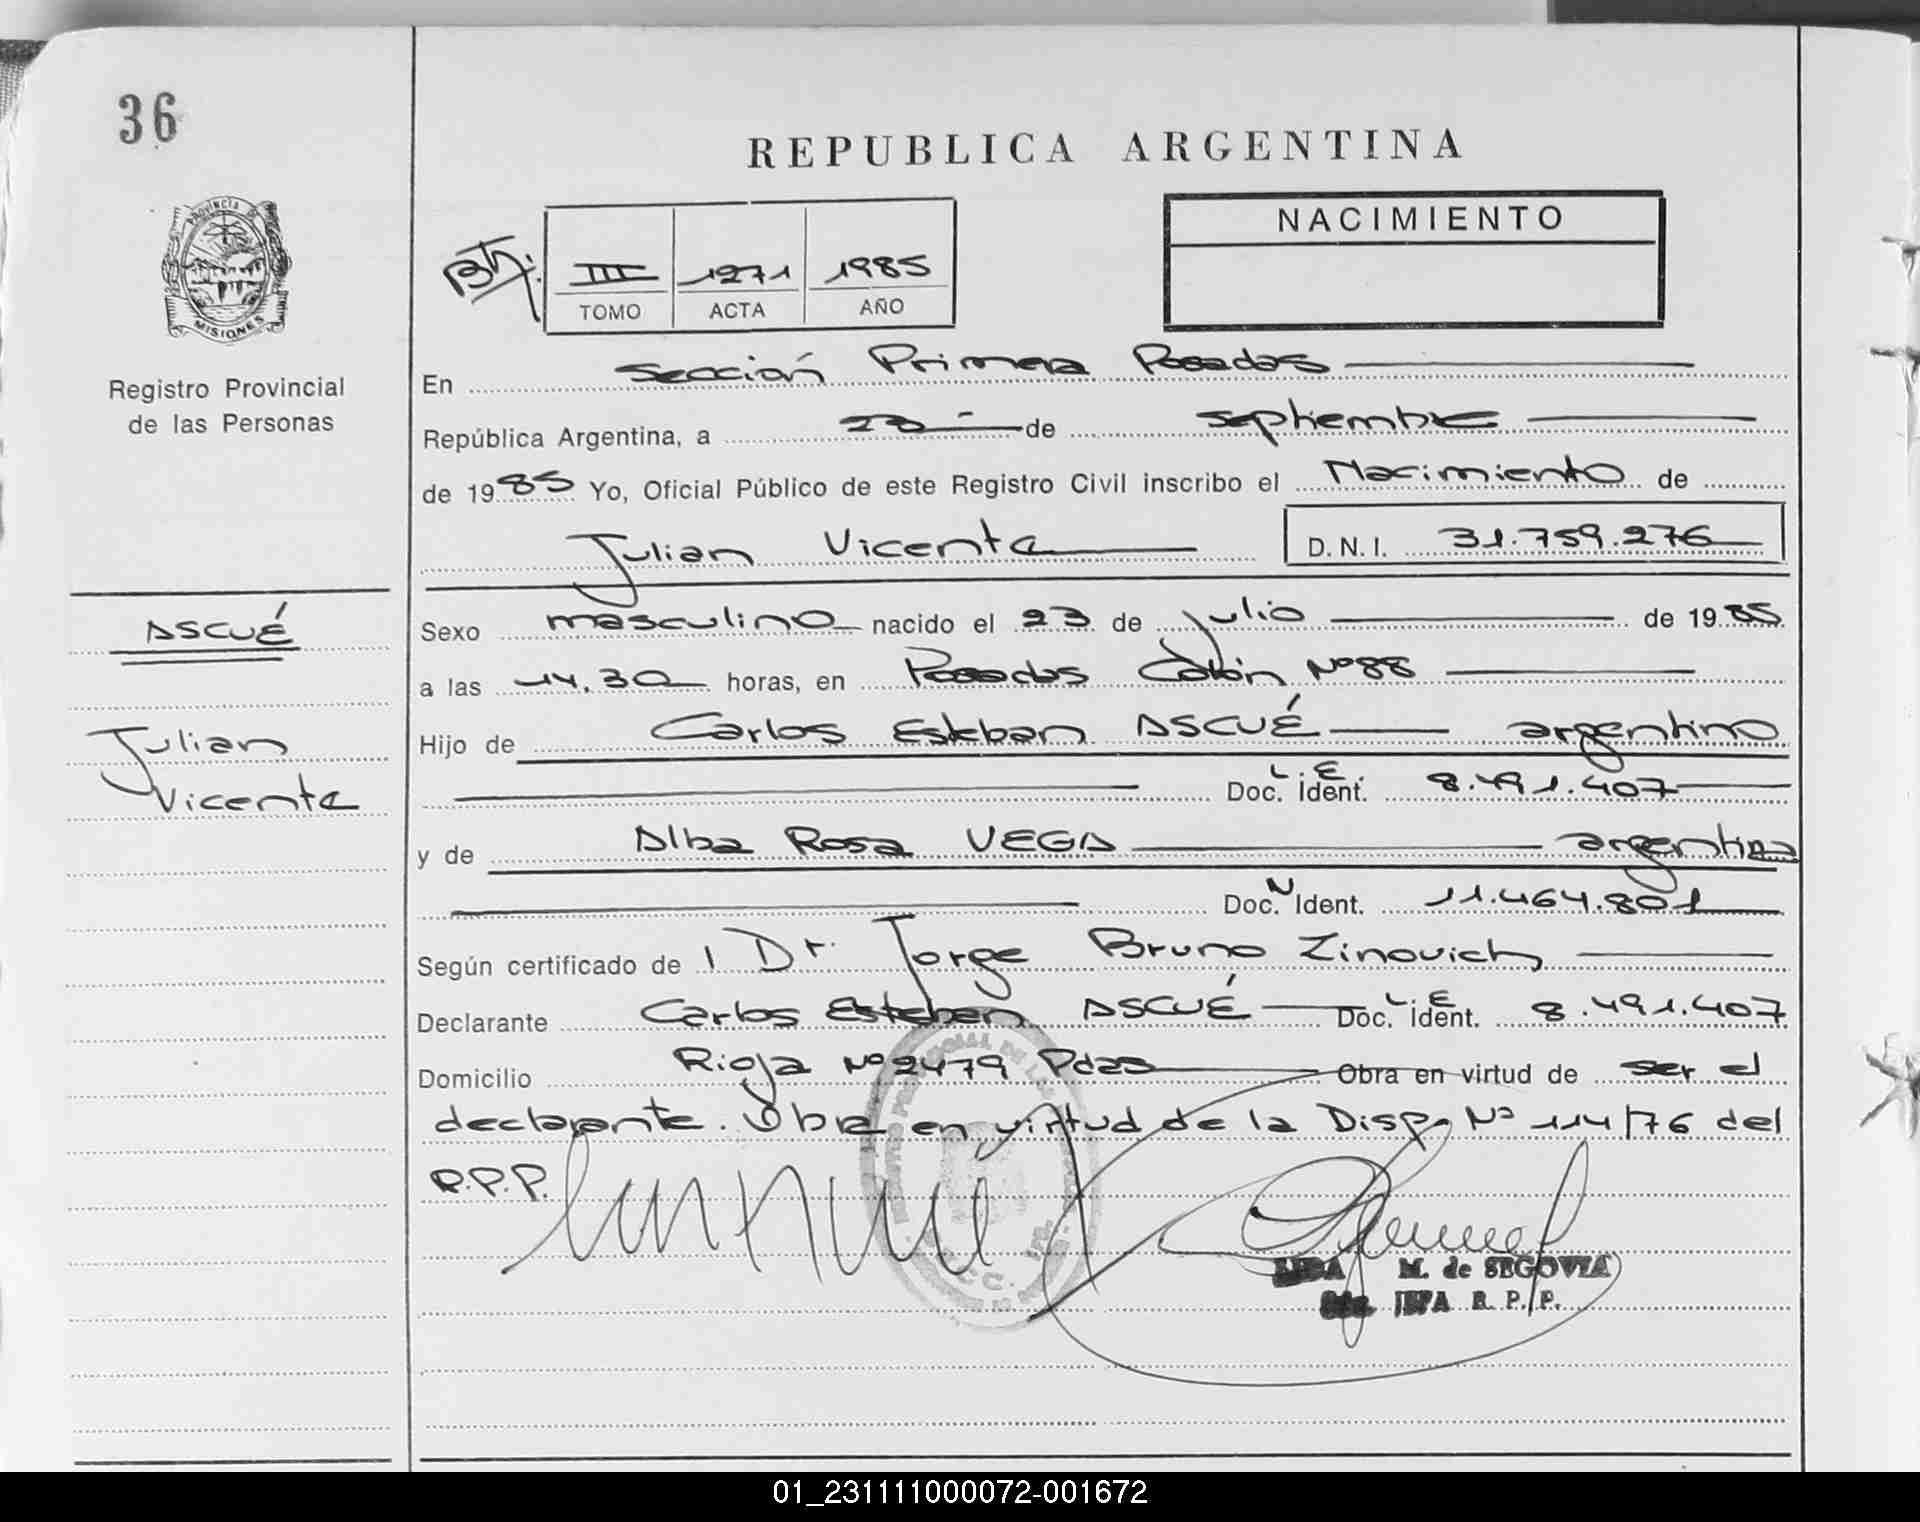 36
PROVINCIA DE
MISIONES
Registro Provincial
de las Personas
ASCUÉ
Julian
Vicente
REPUBLICA ARGENTINA
III 1271 1985
TOMO ACTA AÑO
NACIMIENTO
En Sección Primera Posadas
República Argentina, a 23 de septiembre
de 1985 Yo, Oficial Público de este Registro Civil inscribo el Nacimiento de
Julian Vicente D.N.I. 31.759.276
Sexo masculino nacido el 23 de julio de 1985
a las 14.30 horas, en Posadas Colón Nº 88
Hijo de Carlos Esteban ASCUÉ argentino
L.E.
Doc. Ident. 8.491.407
y de Alba Rosa VEGA argentina
N
Doc. Ident. 11.464.801
Según certificado de l Dr. Jorge Bruno Zinovich
Declarante Carlos Esteban ASCUÉ Doc. L. Ident. E 8.491.407
Domicilio Rioja Nº 2479 Pdas Obra en virtud de ser el
declarante. Obra en virtud de la Disp. Nº 114/76 del
R.P.P.
M. de SEGOVIA
JEFA R. P. P.
01_231111000072-001672